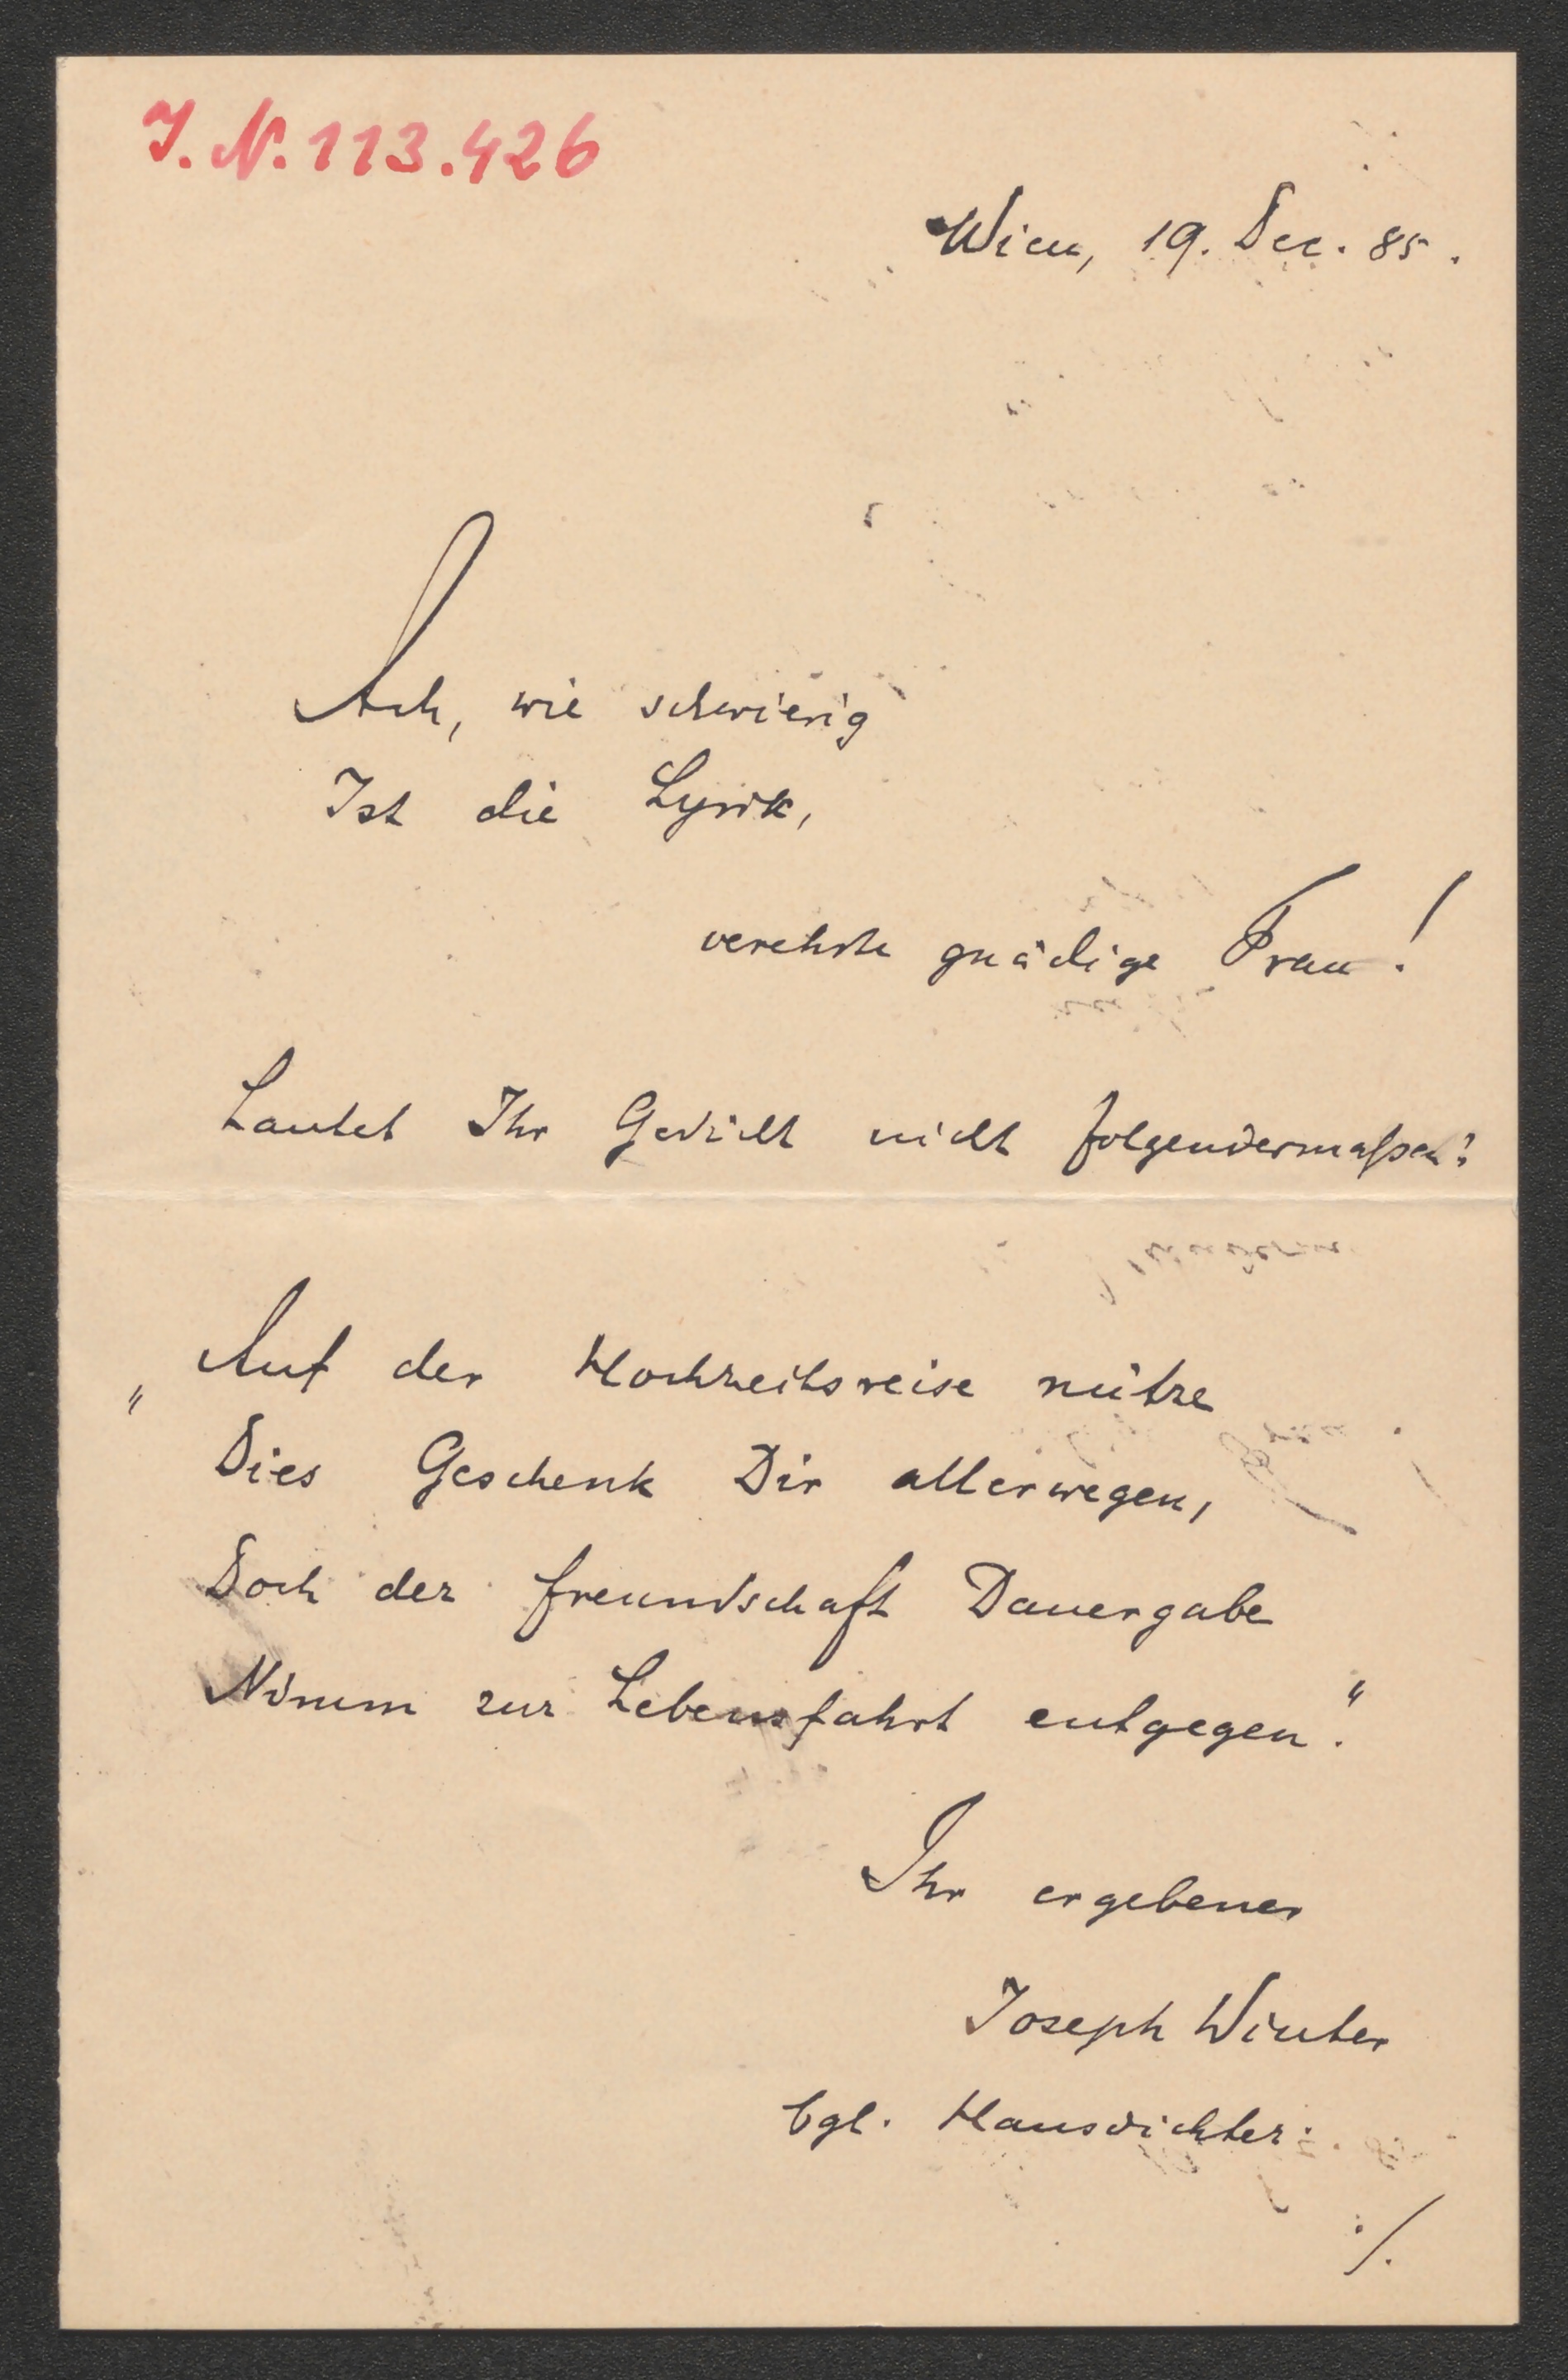 I. N. 113.426
Wien, 19. Dec. 85.
Ach, wie schwierig
Ist die Lyrik,
verehrte gnädige Frau!
Lautet Ihr Gedicht nicht folgendermaßen:
„Auf der Hochzeitsreise nütze
Dies Geschenk Dir allerwegen,
Doch der Freundschaft Dauergabe
Nimm zur Lebensfahrt entgegen."
Ihr ergebener
Joseph Winter
bgl. Hausdichter.
./.